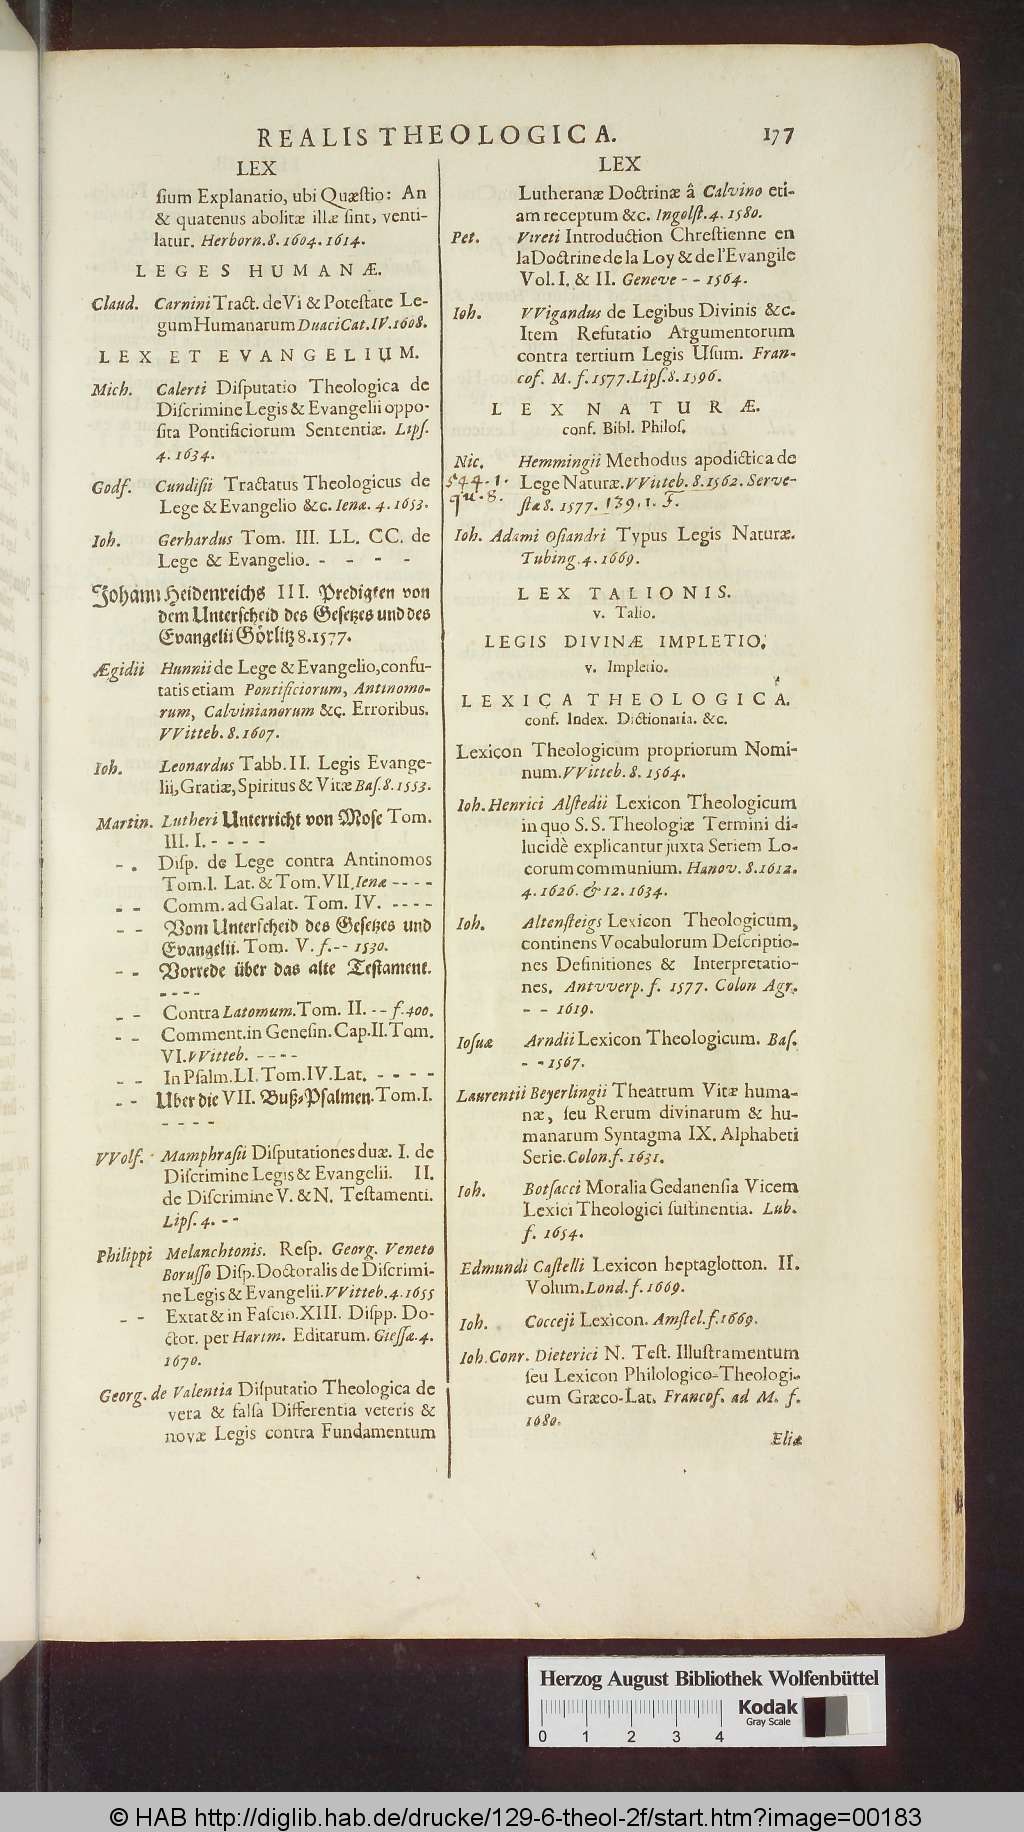 REALIS THEOLOGICA. 177
LEX
ſium Explanatio, ubi Quæſtio: An
& quatenus abolitæ illæ ſint, venti-
latur. Herborn. 8. 1604. 1614.
LEGES HUMANÆ.
Claud. Carnini Tract. de Vi & Poteſtate Le-
gum Humanarum Duaci Cat. IV. 1608.
LEX ET EVANGELIUM.
Mich. Calerti Diſputatio Theologica de
Diſcrimine Legis & Evangelii oppo-
ſita Pontificiorum Sententiæ. Lipſ.
4. 1634.
Godf. Cundiſii Tractatus Theologicus de
Lege & Evangelio &c. Ienæ. 4. 1653.
Ioh. Gerhardus Tom. III. LL. CC. de
Lege & Evangelio. - - - -
Johann Heidenreichs III. Predigten von
dem Unterſcheid des Geſetzes und des
Evangelii Görlitz 8. 1577.
Ægidii Hunnii de Lege & Evangelio, confu-
tatis etiam Pontificiorum, Antinomo-
rum, Calvinianorum &c. Erroribus.
VVitteb. 8. 1607.
Ioh. Leonardus Tabb. II. Legis Evange-
lii, Gratiæ, Spiritus & Vitæ Baſ. 8. 1553.
Martin. Lutheri Unterricht von Moſe Tom.
III. I. - - - -
- . Diſp. de Lege contra Antinomos
Tom. I. Lat. & Tom. VII. Ienæ - - - -
- - Comm. ad Galat. Tom. IV. - - - -
- - Vom Unterſcheid des Geſetzes und
Evangelii. Tom. V. f. - - 1530.
- - Vorrede über das alte Teſtament.
- - - -
- - Contra Latomum. Tom. II. - - f. 400.
- - Comment. in Geneſin. Cap. II. Tom.
VI. VVitteb. - - - -
- - In Pſalm. LI. Tom. IV. Lat. - - - -
- - Uber die VII. Buß-Pſalmen. Tom. I.
- - - -
VVolf. Mamphraſii Diſputationes duæ. I. de
Diſcrimine Legis & Evangelii. II.
de Diſcrimine V. & N. Teſtamenti.
Lipſ. 4. - -
Philippi Melanchtonis. Reſp. Georg. Veneto
Boruſſo Diſp. Doctoralis de Diſcrimi-
ne Legis & Evangelii. VVitteb. 4. 1655
- - Extat & in Faſcio. XIII. Diſpp. Do-
ctor. per Hartm. Editarum. Gieſſæ. 4.
1670.
Georg. de Valentia Diſputatio Theologica de
vera & falſa Differentia veteris &
novæ Legis contra Fundamentum
LEX
Lutheranæ Doctrinæ â Calvino eti-
am receptum &c. Ingolſt. 4. 1580.
Pet. Vireti Introduction Chreſtienne en
la Doctrine de la Loy & de l'Evangile
Vol. I. & II. Geneve - - 1564.
Ioh. VVigandus de Legibus Divinis &c.
Item Refutatio Argumentorum
contra tertium Legis Uſum. Fran-
cof. M. f. 1577. Lipſ. 8. 1596.
LEX NATURÆ.
conf. Bibl. Philoſ.
Nic. Hemmingii Methodus apodictica de
544.1. Lege Naturæ. VVitteb. 8. 1562. Serve-
qu. 8. ſtæ 8. 1577. 139. 1. F.
Ioh. Adami Oſiandri Typus Legis Naturæ.
Tubing. 4. 1669.
LEX TALIONIS.
v. Talio.
LEGIS DIVINÆ IMPLETIO.
v. Impletio.
LEXICA THEOLOGICA.
conf. Index. Dictionaria. &c.
Lexicon Theologicum propriorum Nomi-
num. VVitteb. 8. 1564.
Ioh. Henrici Alſtedii Lexicon Theologicum
in quo S. S. Theologiæ Termini di-
lucidè explicantur juxta Seriem Lo-
corum communium. Hanov. 8. 1612.
4. 1626. & 12. 1634.
Ioh. Altenſteigs Lexicon Theologicum,
continens Vocabulorum Deſcriptio-
nes Definitiones & Interpretatio-
nes. Antvverp. f. 1577. Colon Agr.
- - 1619.
Ioſuæ Arndii Lexicon Theologicum. Baſ.
- - 1567.
Laurentii Beyerlingii Theatrum Vitæ huma-
næ, ſeu Rerum divinarum & hu-
manarum Syntagma IX. Alphabeti
Serie. Colon. f. 1631.
Ioh. Botſacci Moralia Gedanenſia Vicem
Lexici Theologici ſuſtinentia. Lub.
f. 1654.
Edmundi Caſtelli Lexicon heptaglotton. II.
Volum. Lond. f. 1669.
Ioh. Cocceji Lexicon. Amſtel. f. 1669.
Ioh. Conr. Dieterici N. Teſt. Illuſtramentum
ſeu Lexicon Philologico-Theologi-
cum Græco-Lat. Francof. ad M. f.
1680.
Eliæ
Herzog August Bibliothek Wolfenbüttel
Kodak
Gray Scale
0 1 2 3 4
© HAB http://diglib.hab.de/drucke/129-6-theol-2f/start.htm?image=00183